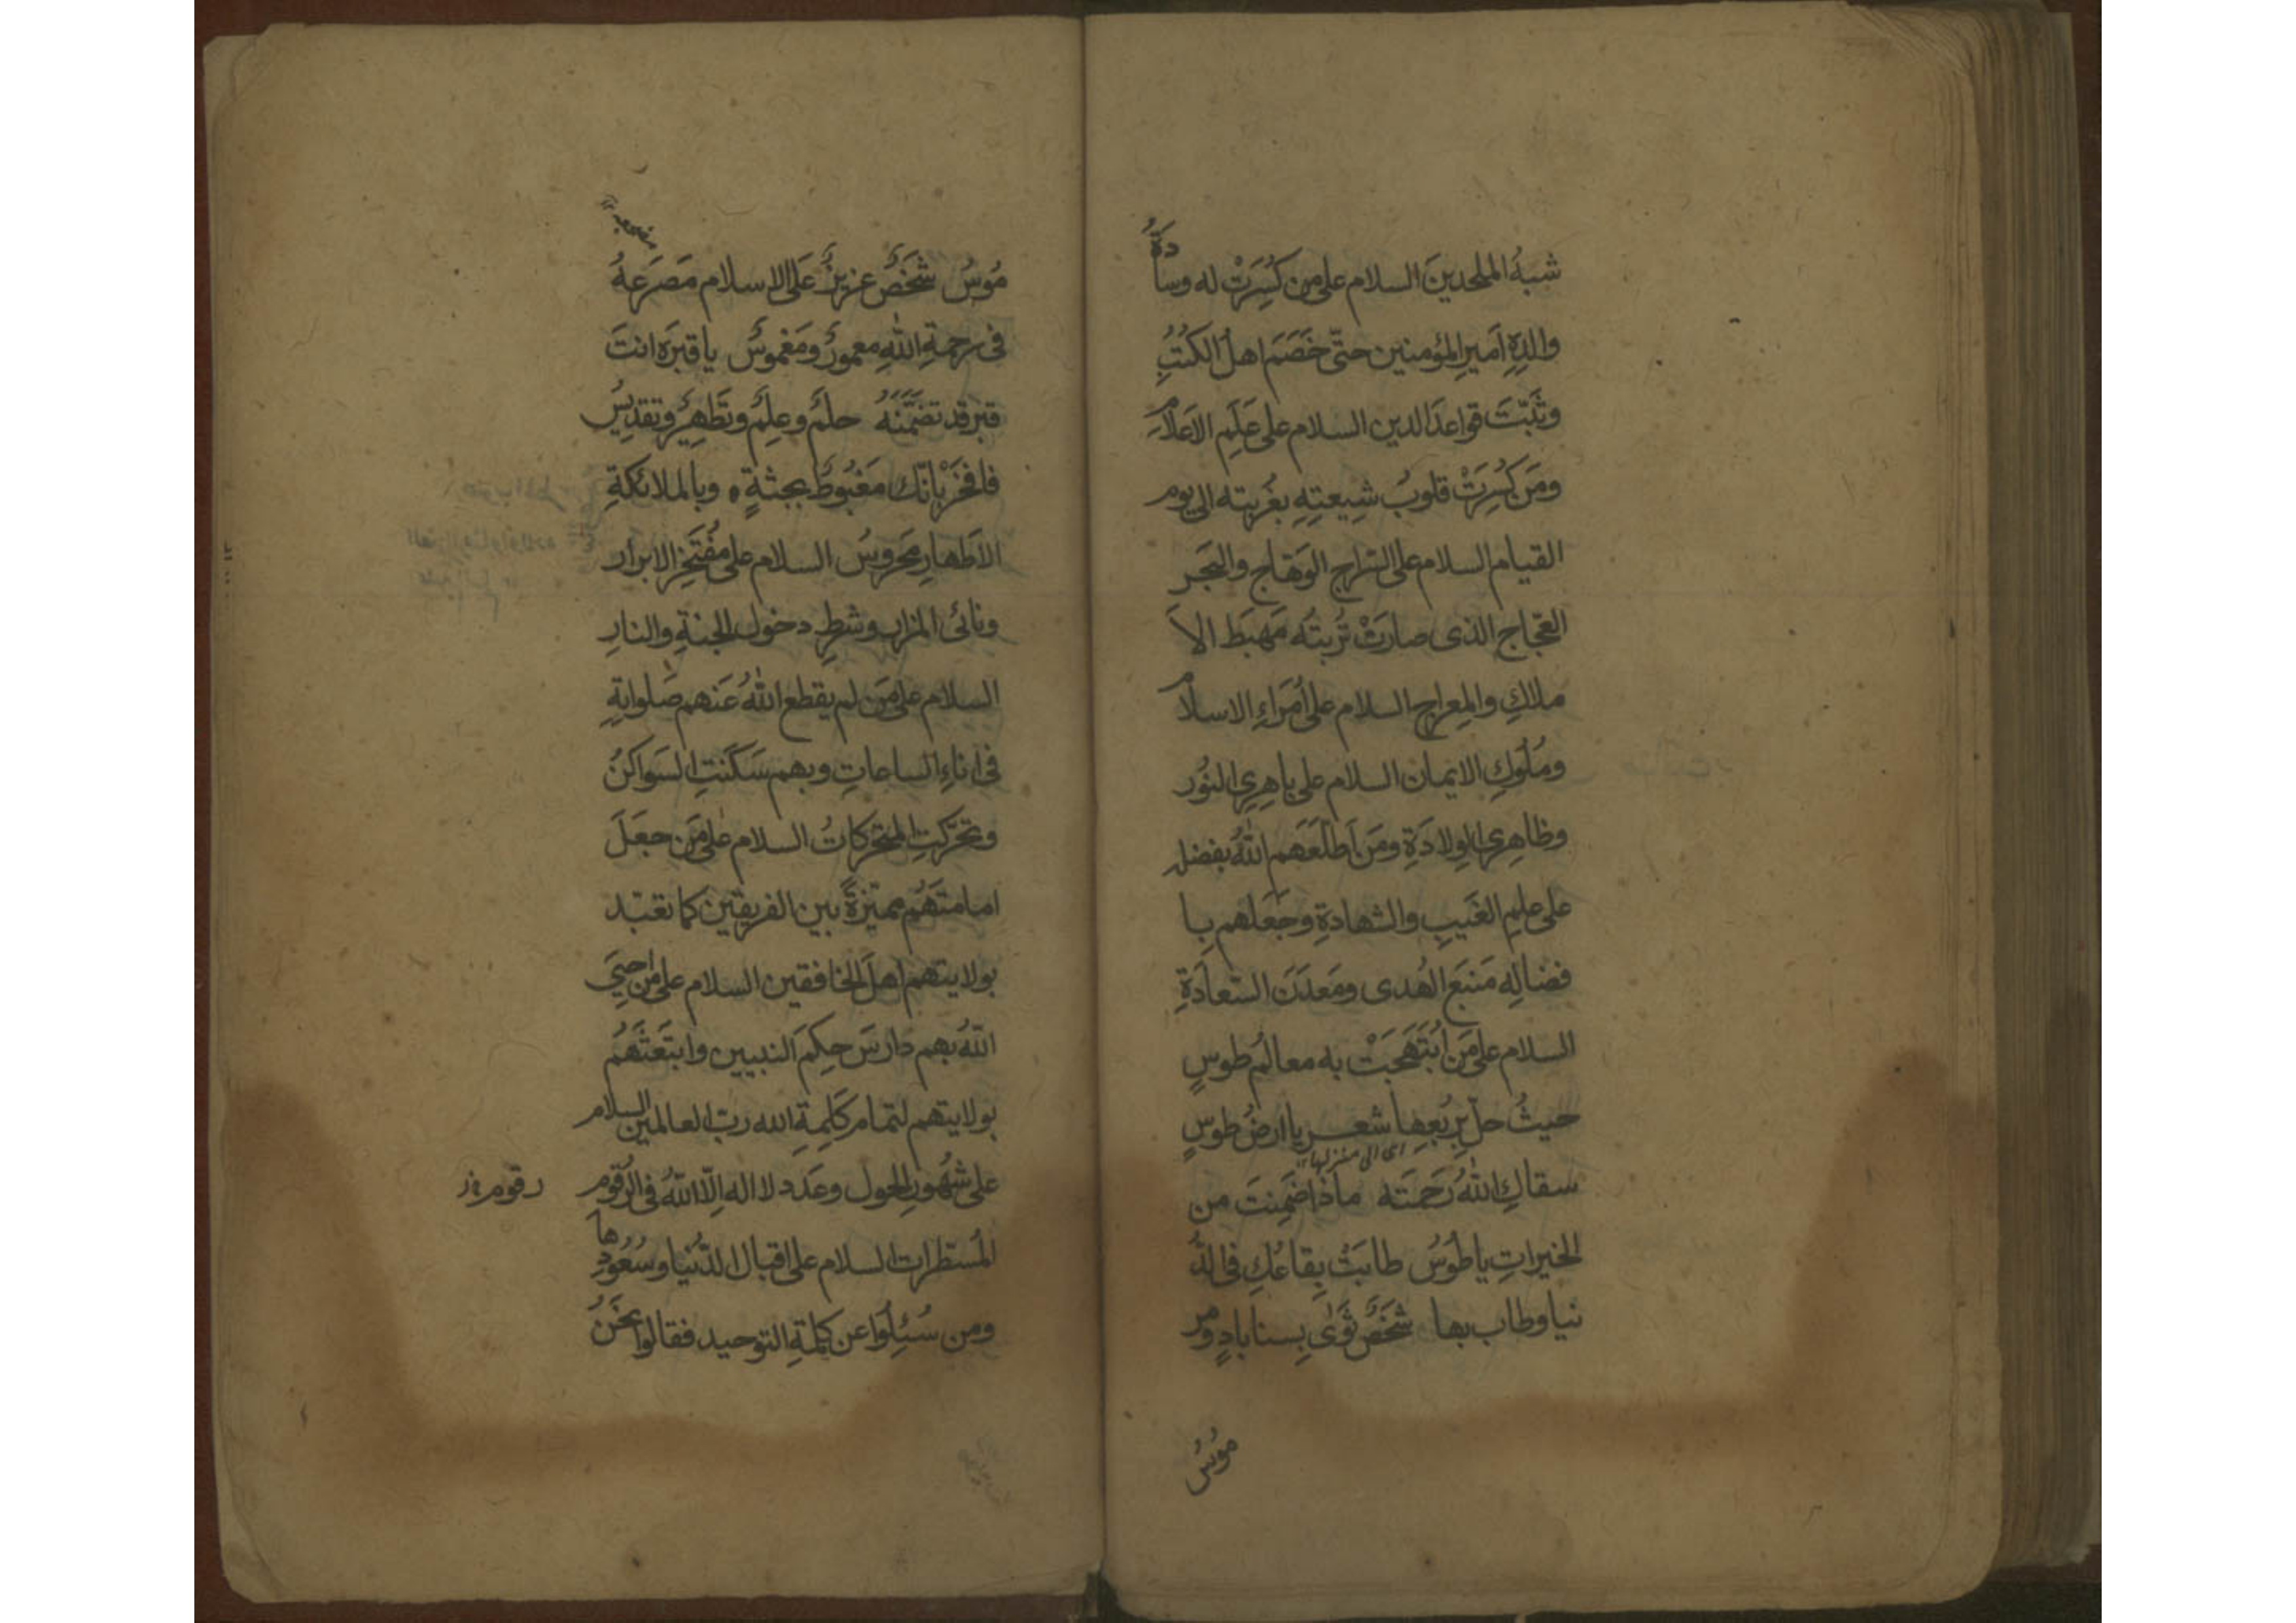 شبهُ الملحدينَ السلام على من كُسِرَتْ له وسادَةُ
والدِهِ اَميرِ المؤمنين حتّى خَصَمَ اهلَ الكتُبِ
وثَبَّتَ قواعدَ الدين السلام على عَلَمِ الاَعلاَم
ومَن كُسِرَتْ قلوبُ شِيعتِهِ بغُربته الى يوم
القيام السلام على السّراج الوَهّاج والبَحَر
العَجّاج الذى صارَتْ تُربتُه مَهبَط الاَ
ملاكِ والمِعراج السلام على اُمَراءِ الاسلام
ومُلوكِ الايمان السلام على باهِرِى النوُر
وظاهِرِى الوِلادَةِ ومَن اَطلَعَهم اللهُ بفضله
على علمِ الغَيبِ والشهادةِ وجَعَلهم بِا
فضالِه مَنبَعَ الهُدى ومَعدَنَ السّعادَةِ
السلام على مَن ابتَهَجَتْ به معالمُ طوسٍ
حيثُ حلّ بِرَبْعِها شعـر يا ارضُ طوسٍ
اى الى منزلها
سقاكِ اللهُ رَحمَته ماذا ضَمِنتَ من
الخيراتِ يا طوُسُ طابَتْ بِقاعُكِ فى الدُّ
نيا وطاب بها شَخَصٌ ثَوٰى بِسناباد ومر
موُسُ
مُوسُ شَخَصٌ عزيزٌ عَلَى الاسلام مَصَرَعهُ
فى رحمةِ اللهِ معمورٌ ومَغموسٌ يا قبرَه انتَ
قبرٌ قد تضمَّنَهُ حلمٌ وعِلمٌ وتَطهِيرٌ وتقديِسٌ
فافخَرْ بانّك مَغبُوطٌ بجثةٍ ه وبالملائكةِ
الاَطهارِ محَروسُ السلام على مُفتَخرِ الابرار
ونائى المزار وشرطِ دخول الجنةِ والنارِ
السلام على من لم يقطع اللهُ عَنهم صَلواتهِ
فى اناءِ الساعاتِ وبهم سَكَنَتِ السَواكنُ
وتحَرّكَتِ المتحركاتُ السلام على مَن جعَلَ
امامتَهُم مميّزةً بين الفريقين كما تعبّد
بولايتهم اهلَ الخافقين السلام على من احيَى
اللهُ بهم دارسَ حِكَمِ النبيين وابتَعَثَهُم
بولايتهم لتمام كَلِمةِ الله ربّ العالمين السلام
على شهُورِ الحول وعَدَدِ لا اله اِلّا اللهُ فى الرّقوم
رقوم
المُستظرات السلام على اقبال الدّنيا وسُعُودِها
ومن سُئِلُوا عن كلمةِ التوحيد فقالوا نَحَنُ